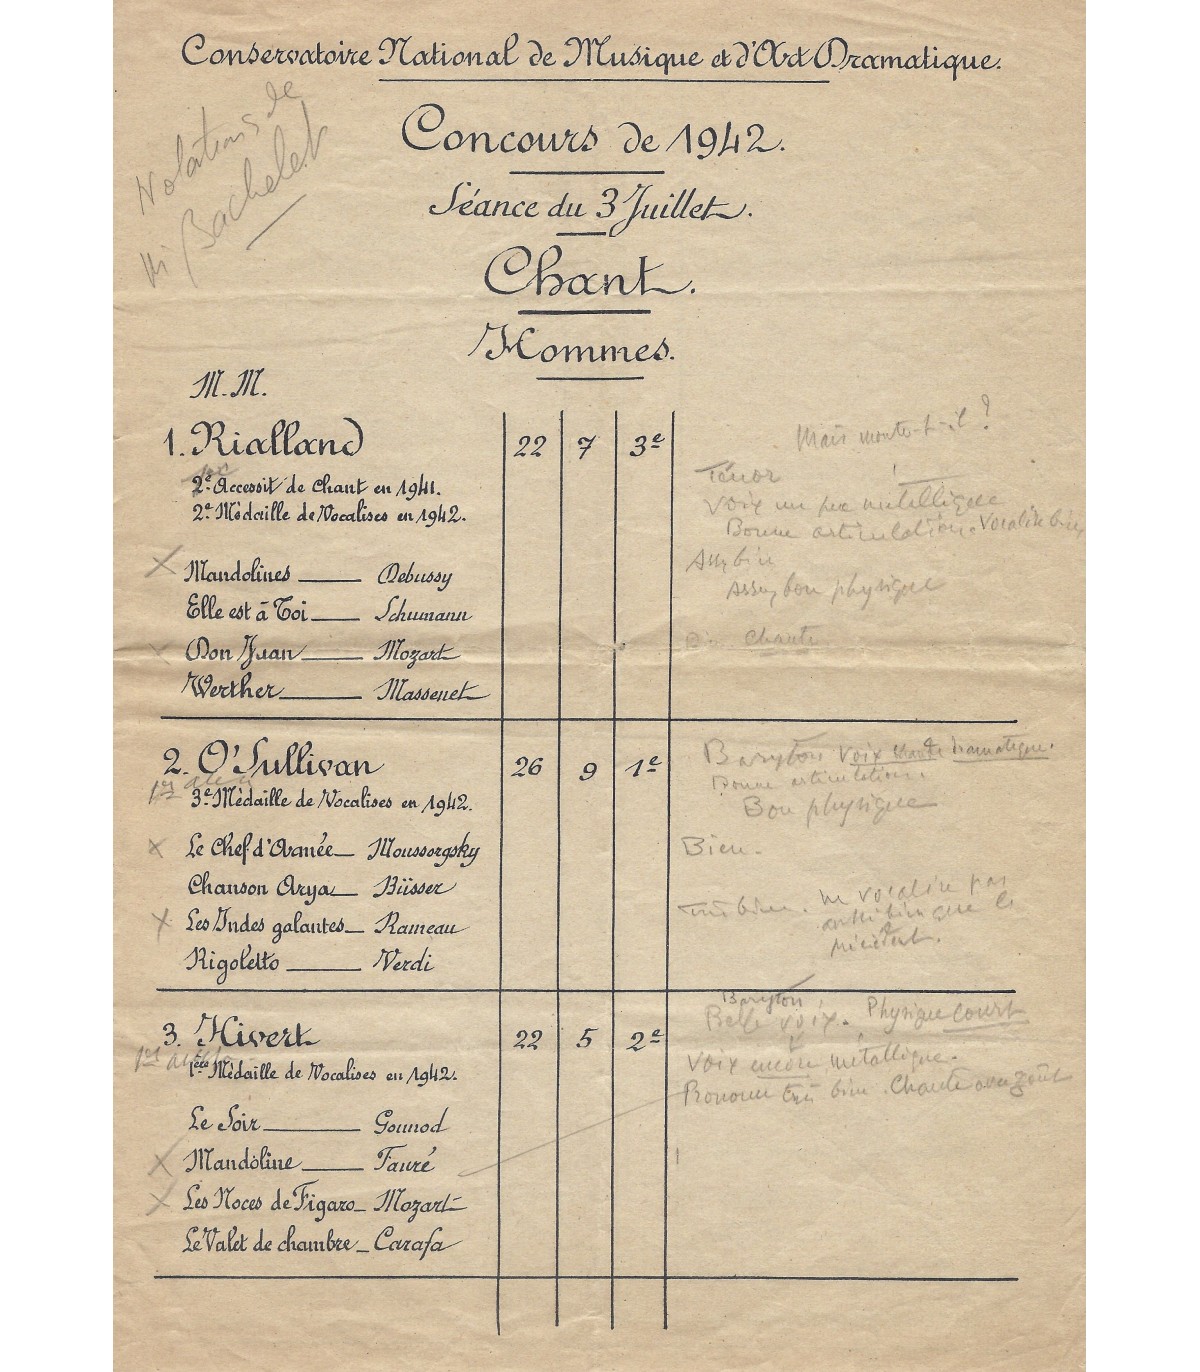 Conservatoire National de Musique et d'Art Dramatique.
Notations de
Mr Bachelet
Concours de 1942.
Séance du 3 Juillet.
Chant.
Hommes.
M.M.
1. Rialland 22 7 3e
Mais monte-t-il ?
2e Accessit de Chant en 1941.
2e Médaille de Vocalises en 1942.
Ténor
Voix un peu métallique
Bonne articulation. Vocalise bien
Mandolines — Debussy
Assez bien
Elle est à Toi — Schumann
Assez bon physique
Don Juan — Mozart
chante
Werther — Massenet
2. O'Sullivan 26 9 1e
Baryton Voix dramatique.
3e Médaille de Vocalises en 1942.
Bonne articulation.
Bon physique
Le Chef d'Armée — Moussorgsky
Bien.
Chanson Arya — Büsser
Les Indes galantes — Rameau
Très bien. ne vocalise pas
aussi bien que le
précédent.
Rigoletto — Verdi
3. Hivert 22 5 2e
Baryton
Belle voix. Physique court
1ère Médaille de Vocalises en 1942.
Voix encore métallique.
Prononce très bien. Chante avec goût
Le Soir — Gounod
Mandoline — Fauré
Les Noces de Figaro — Mozart
Le Valet de chambre — Carafa